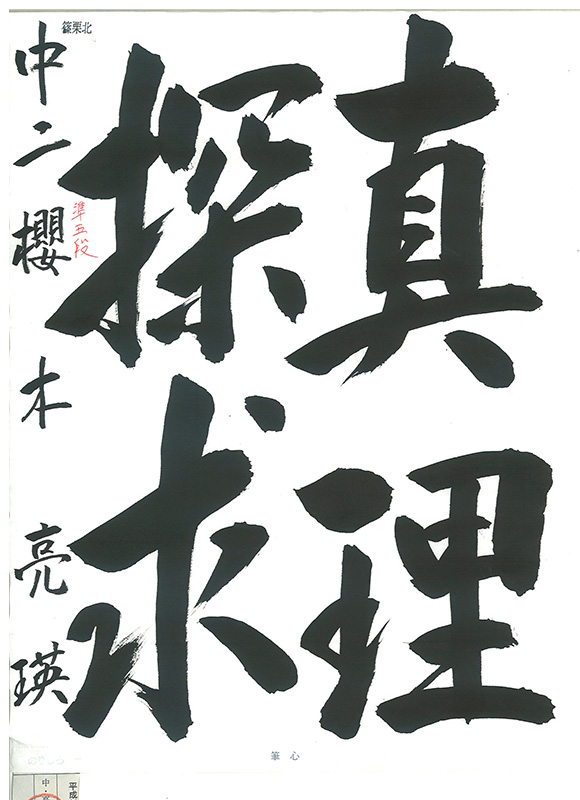 真理
探求
篠栗北
準五段
中二 櫻木亮瑛
筆心
平成
中・